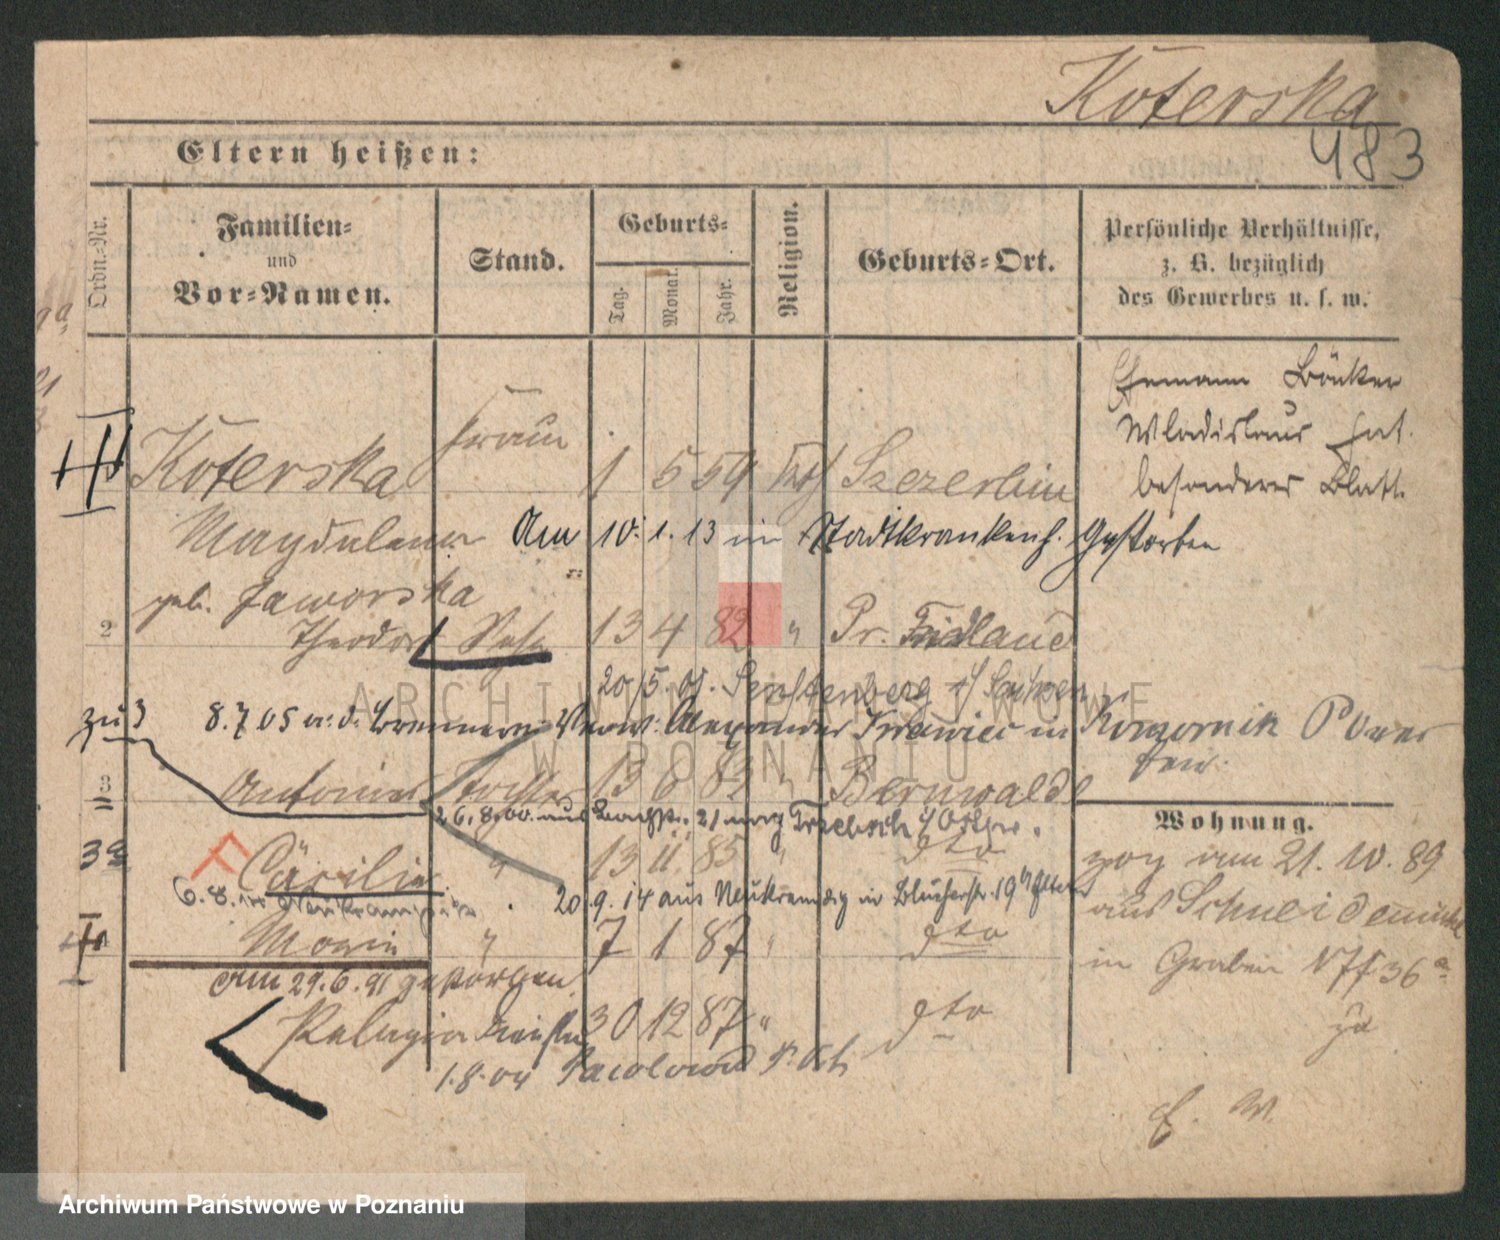 Koterska
483
Eltern heißen:
Ordn.-Nr.
Familien-
und
Vor-Namen.
Stand.
Geburts-
Tag.
Monat.
Jahr.
Religion.
Geburts-Ort.
Persönliche Verhältnisse,
z. B. bezüglich
des Gewerbes u. s. w.
Ehemann Böttcher
Wladislaus hat
besonderes Blatt.
Koterska Frau 1 5 59 kth Szczerbin
Magdalena Am 10. 1. 13 im Stadtkrankenh. Gestorben
geb. Jaworska
2 Theodor Sohn 13 4 82 " Pr. Friedland
20/5. 01. Senftenberg
zu 3 8. 7 05 Alexander in Komornik Posen
3 Antonie Tochter 13 6 83 " Bernwalde
26. 8. 00. aus 21 nach
Wohnung.
3a F Cäcilie " 13 11 85 " dto
6. 8. in Neukramzig
20. 9. 14 aus Neukramzig in Blücherstr. 19
zog am 21. 10. 89
aus Schneidemühl
in Graben No 36a
zu
Marie " 7 1 87 " dto
Am 29. 6. 91 gestorben.
Pelagia 30 12 87 " dto
1. 8. 04
E. W.
ARCHIWUM PAŃSTWOWE
W POZNANIU
Archiwum Państwowe w Poznaniu